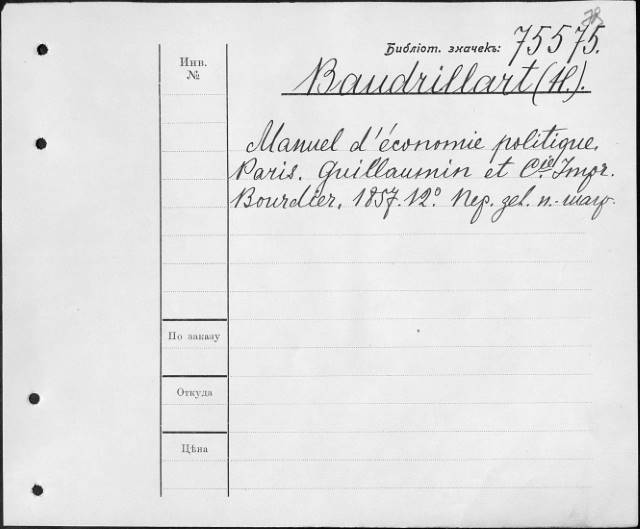 78
Библіот. значекъ: 75575.
Инв.
№
Baudrillart (H.).
Manuel d'économie politique.
Paris. Guillaumin et Cie Impr.
Bourdier, 1857. 12º. Пер. zel. п.-шагр.
По заказу
Откуда
Цѣна